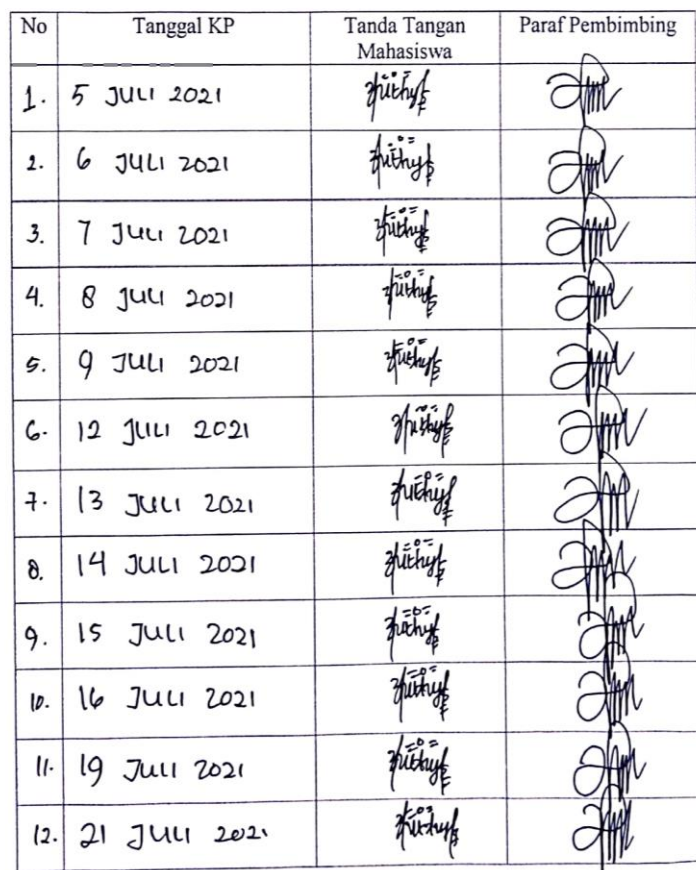 No Tanggal KP Tanda Tangan Mahasiswa Paraf Pembimbing
1. 5 JULI 2021
2. 6 JULI 2021
3. 7 JULI 2021
4. 8 JULI 2021
5. 9 JULI 2021
6. 12 JULI 2021
7. 13 JULI 2021
8. 14 JULI 2021
9. 15 JULI 2021
10. 16 JULI 2021
11. 19 JULI 2021
12. 21 JULI 2021